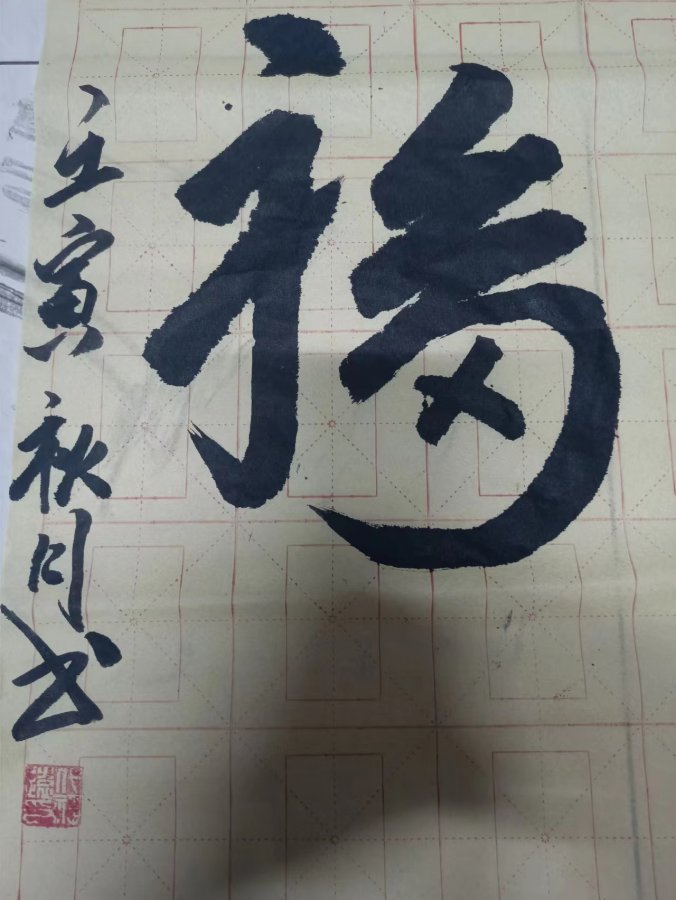 福
壬寅秋月书